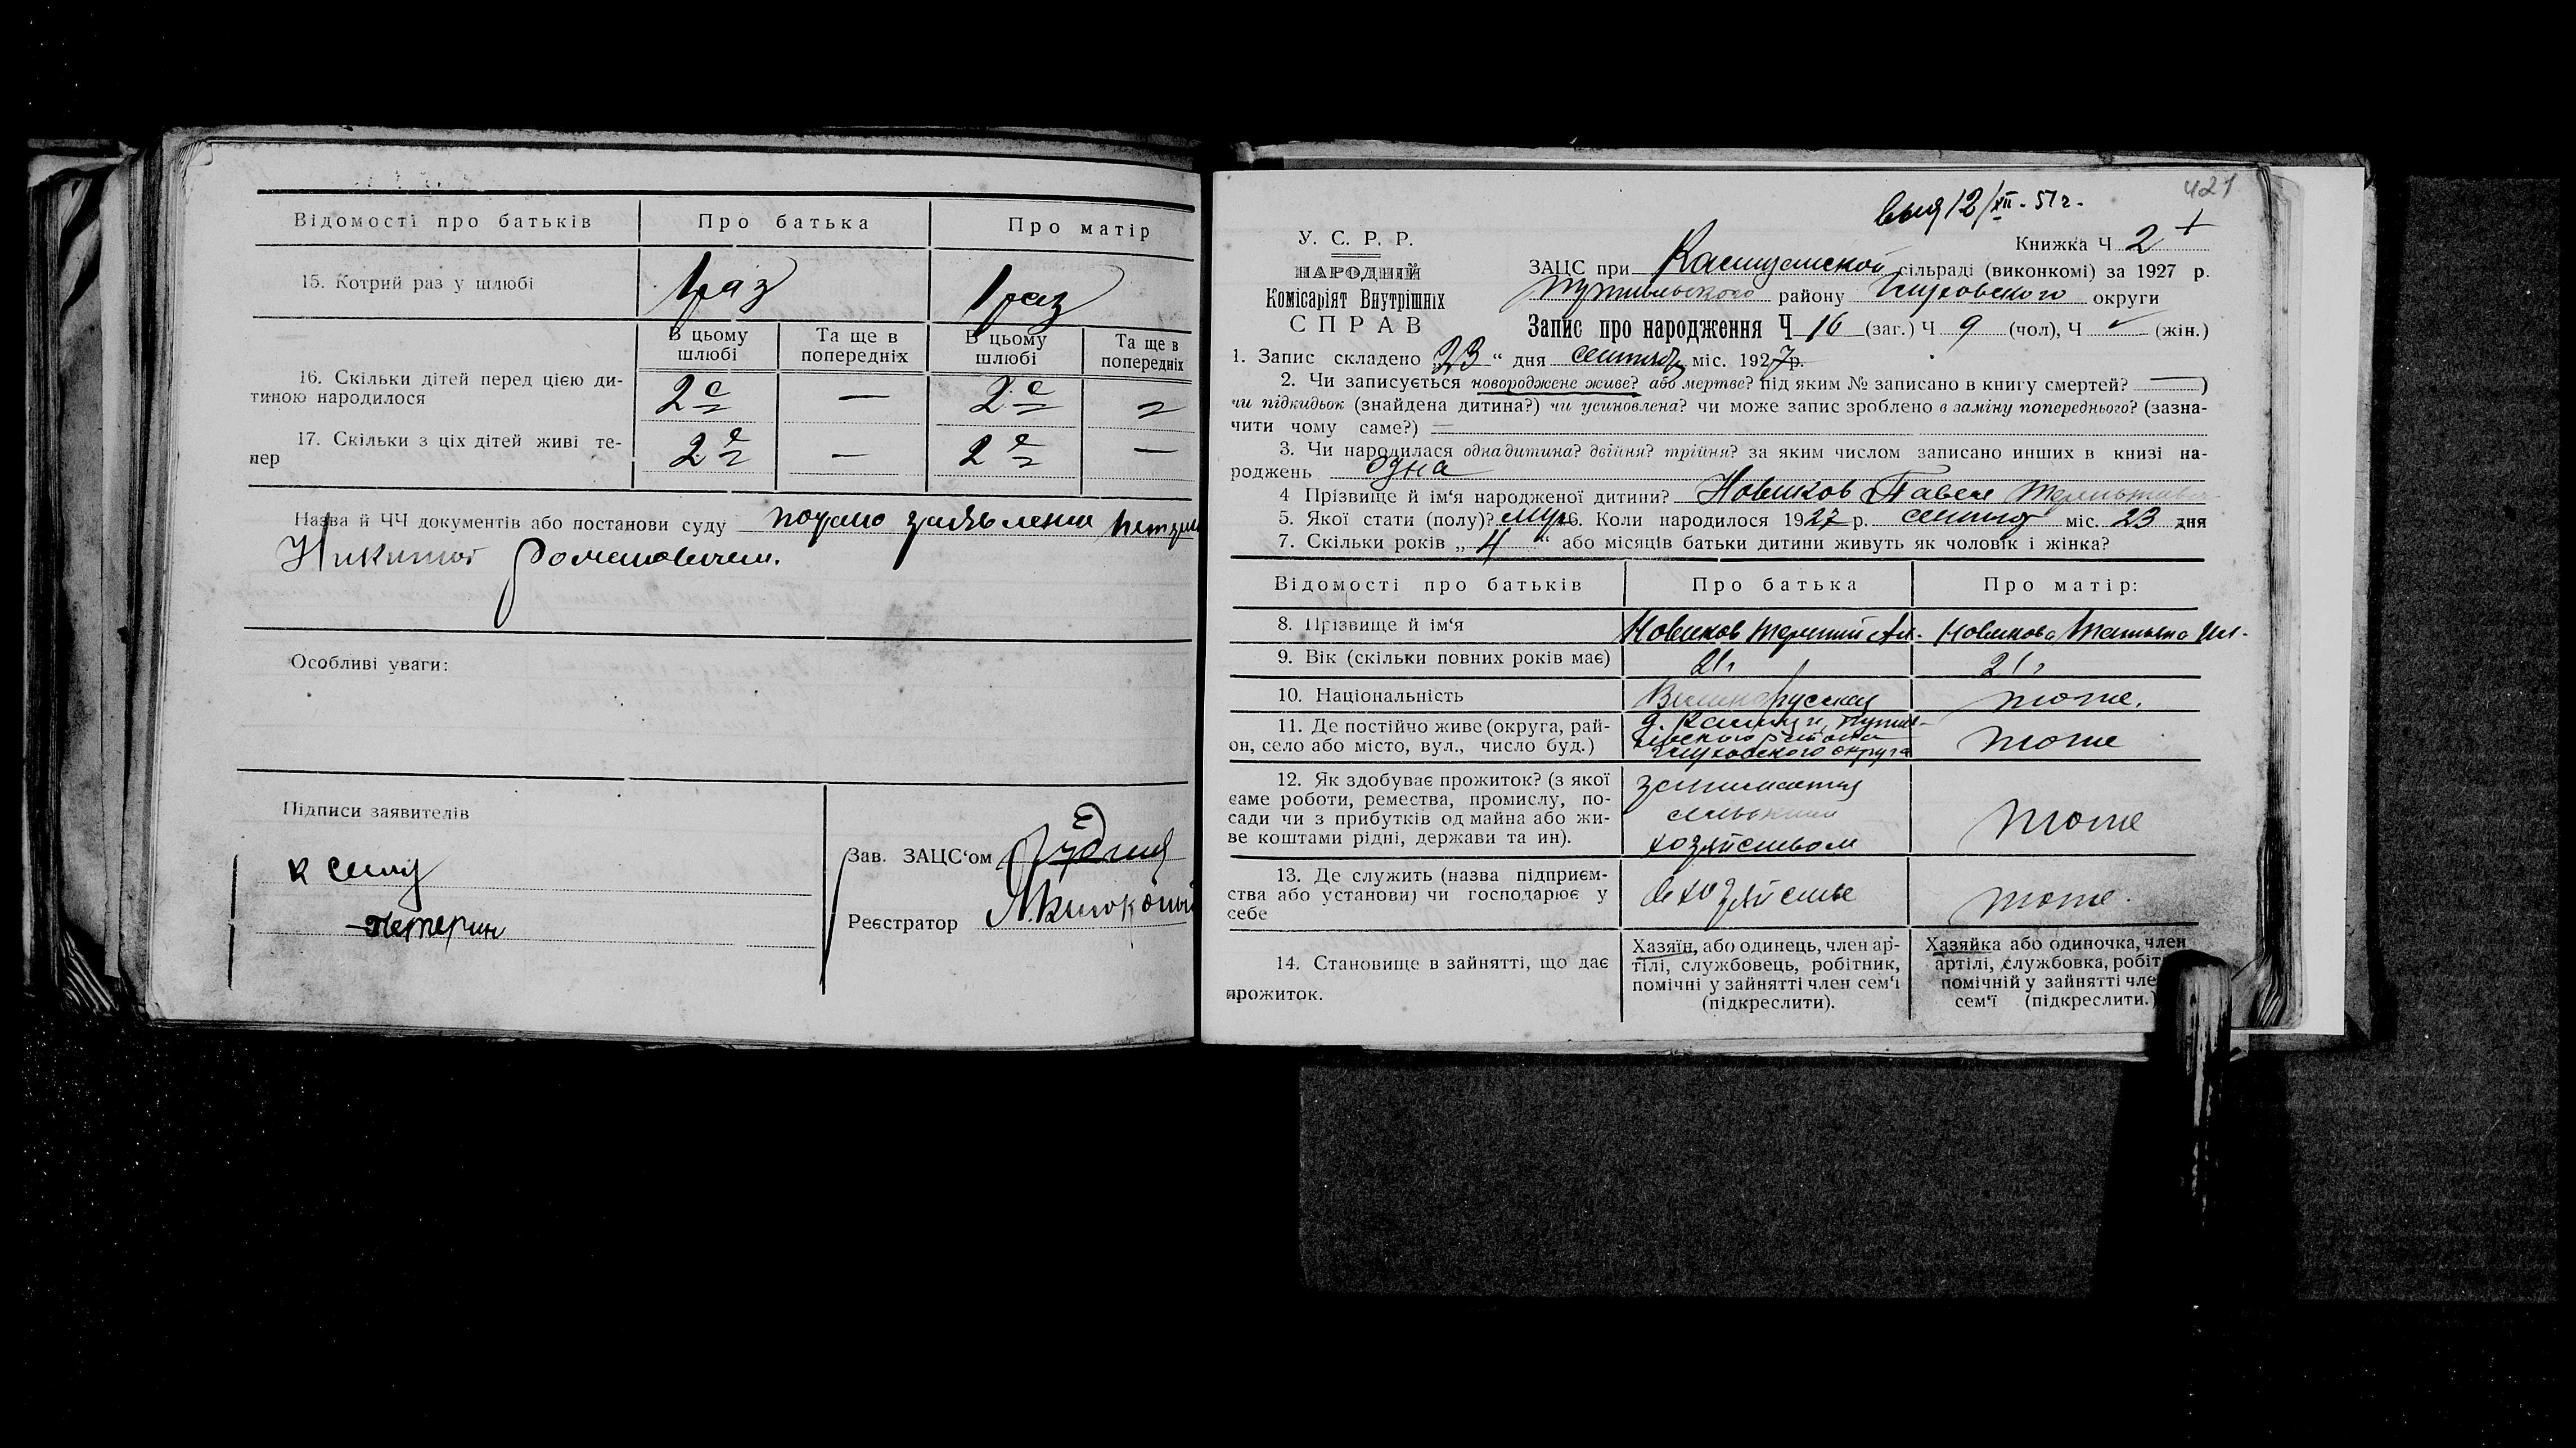 Відомості про батьків Про батька Про матір
15. Котрий раз у шлюбі 1 раз 1 раз
В цьому шлюбі Та ще в попередніх В цьому шлюбі Та ще в попередніх
16. Скільки дітей перед цією ди-
тиною народилося 2е — 2е =
17. Скільки з ціх дітей живі те-
пер 2е — 2е —
Назва й ЧЧ документів або постанови суду подано заявление
Никитой Романовичем.
Особливі уваги:
Підписи заявителів
к сему
Петерин
Зав. ЗАЦС‘ом
Реєстратор
421
выд 12/XII - 51 г.
Книжка Ч 2 +
У. С. Р. Р.
НАРОДНІЙ
Комісаріят Внутрішніх
СПРАВ
ЗАЦС при сільраді (виконкомі) за 1927 р.
Путивльского району Глуховского округи
Запис про народження Ч 16 (заг.) Ч 9 (чол), Ч (жін.)
1. Запис складено 23 “ дня сентябр міс. 1927 р.
2. Чи записується новороджене живе? або мертве? під яким № записано в книгу смертей? —)
чи підкидьок (знайдена дитина?) чи усиновлена? чи може запис зроблено в заміну попереднього? (зазна-
чити чому саме?) —
3. Чи народилася одна дитина? двійня? трійня? за яким числом записано инших в книзі на-
роджень одна
4 Прізвище й ім‘я народженої дитини? Новиков Павел Терентьев
5. Якої стати (полу)? муж 6. Коли народилося 1927 р. сентяб міс. 23 дня
7. Скільки років „ 4 “ або місяців батьки дитини живуть як чоловік і жінка?
Відомості про батьків Про батька Про матір:
8. Прізвище й ім‘я Новиков Терентий Ал. Новикова Татьяна
9. Вік (скільки повних років має) 21 г 21 г
10. Національність Великорусская тоже.
11. Де постійно живе (округа, рай-
он, село або місто, вул., число буд.) Путив-
льского района
Глуховского округа тоже
12. Як здобуває прожиток? (з якої
саме роботи, ремества, промислу, по-
сади чи з прибутків од майна або жи-
ве коштами рідні, держави та ин).
занимается
сельским
хозяйством тоже
13. Де служить (назва підприєм-
ства або установи) чи господарює у
себе в хозяйстве тоже.
14. Становище в зайнятті, що дає
прожиток.
Хазяїн, або одинець, член ар-
тілі, службовець, робітник,
помічні у зайнятті член сем‘ї
(підкреслити).
Хазяйка або одиночка, член
артілі, службовка, робіт
помічній у зайнятті чле
сем‘ї (підкреслити.)